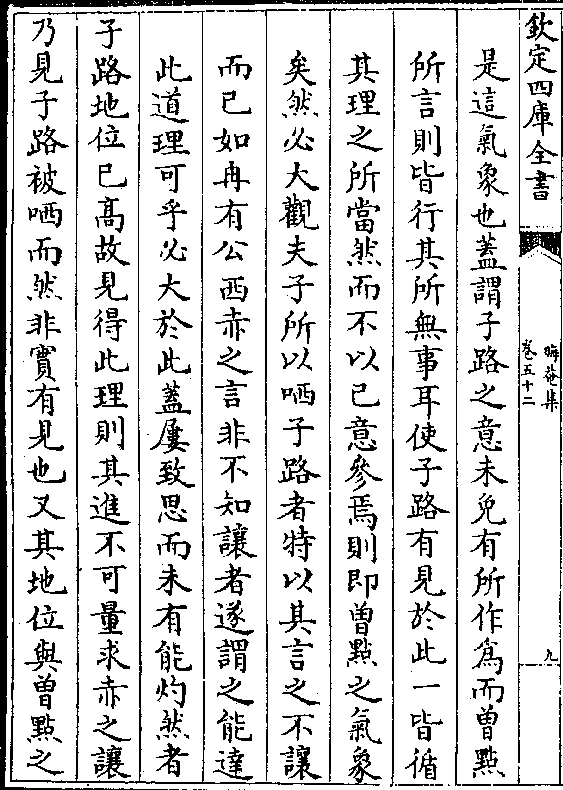 欽定四庫全書
晦菴集
卷五十二
九
是這氣象也蓋謂子路之意未免有所作爲而曾點
所言則皆行其所無事耳使子路有見於此一皆循
其理之所當然而不以已意參焉則即曾點之氣象
矣然必大觀夫子所以哂子路者特以其言之不讓
而已如冉有公西赤之言非不知讓者遂謂之能達
此道理可乎必大於此蓋屢致思而未有能灼然者
子路地位已髙故見得此理則其進不可量求赤之讓
乃見子路被哂而然非實有見也又其地位與曾點之